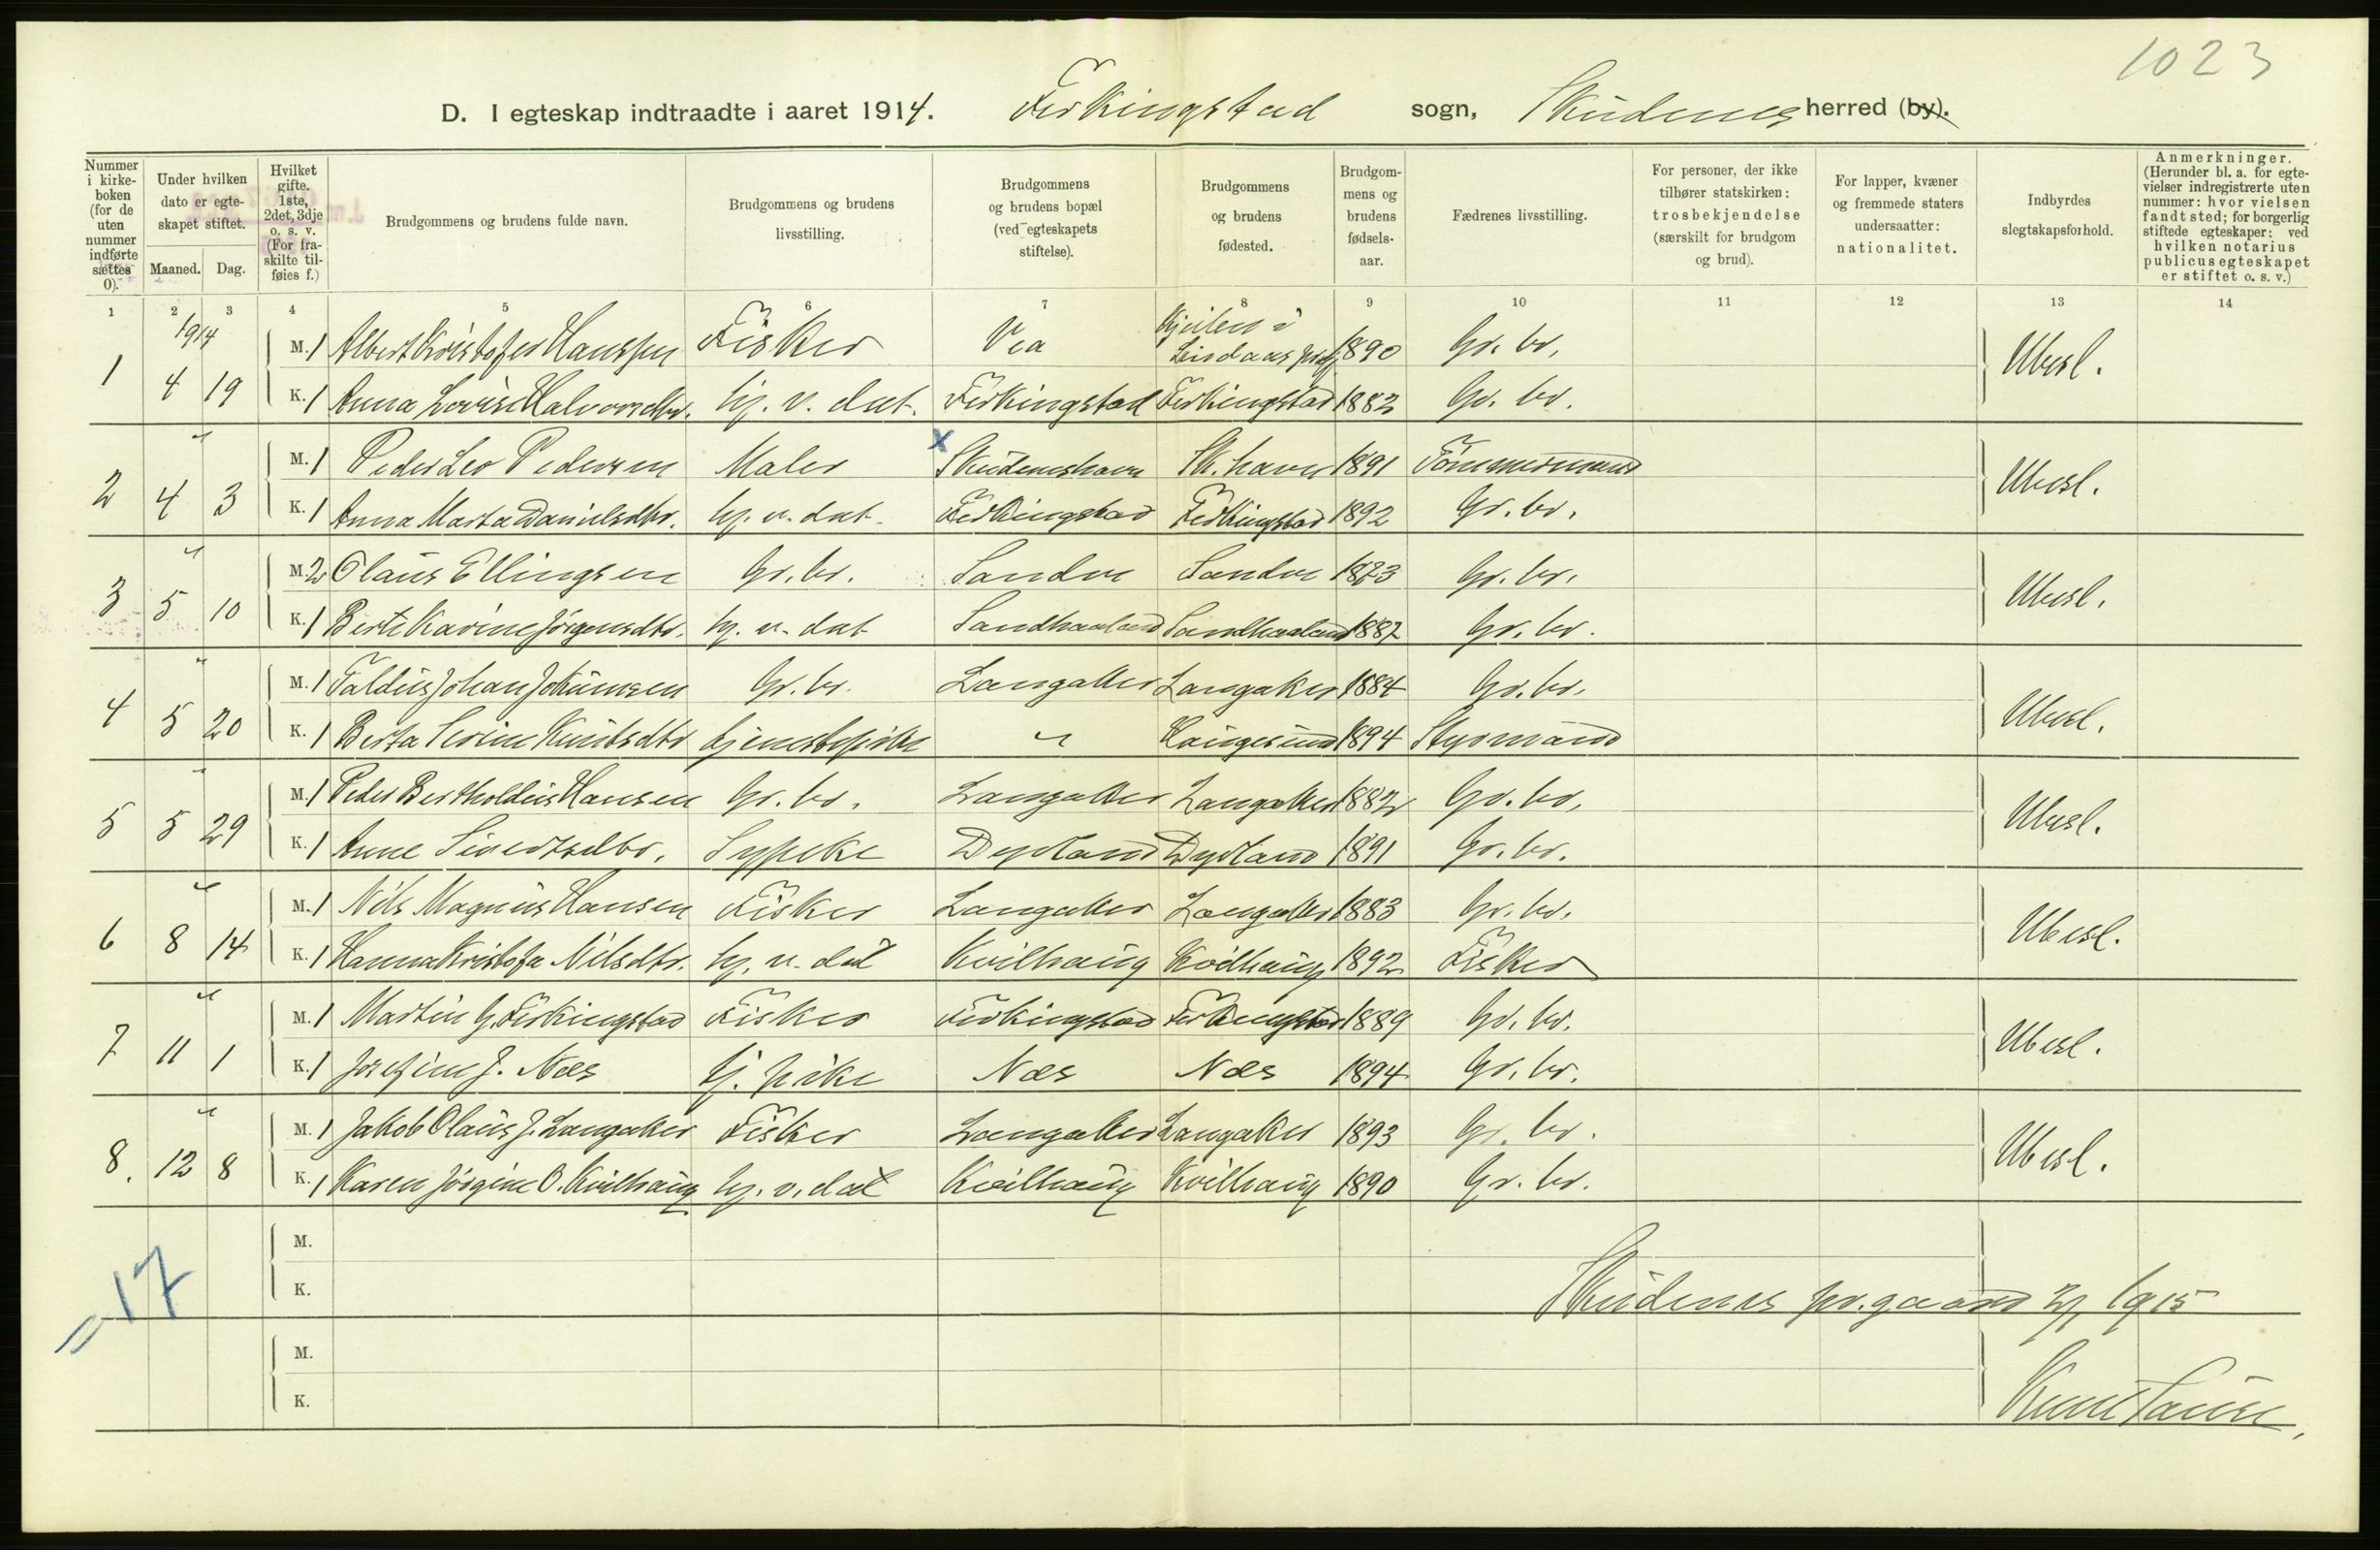 1023
D. I egteskap indtraadte i aaret 1914. Ferkingstad sogn, Skudenes herred (by).
Nummer i kirke-boken (for de uten nummer indførte sættes 0).
Under hvilken dato er egte-skapet stiftet.
Maaned. Dag.
Hvilket gifte. 1ste, 2det, 3dje o. s. v. (For fra-skilte til-føies f.)
Brudgommens og brudens fulde navn.
Brudgommens og brudens livsstilling.
Brudgommens og brudens bopæl (ved egteskapets stiftelse).
Brudgommens og brudens fødested.
Brudgom-mens og brudens fødsels-aar.
Fædrenes livsstilling.
For personer, der ikke tilhører statskirken: trosbekjendelse (særskilt for brudgom og brud).
For lapper, kvæner og fremmede staters undersaatter: nationalitet.
Indbyrdes slegtskapsforhold.
Anmerkninger. (Herunder bl. a. for egte-vielser indregistrerte uten nummer: hvor vielsen fandt sted; for borgerlig stiftede egteskaper: ved hvilken notarius publicus egteskapet er stiftet o. s. v.)
1 2 3 4 5 6 7 8 9 10 11 12 13 14
1914
M. 1 Albert Kristofer Hanssen Fisker Vea 1890 Gr. br.
1 4 19 Ubesl.
K. 1 Anna Lovise Halvorsdtr. hj. v. dat. Ferkingstad Ferkingstad 1882 Gr. br.
" M. 1 Peder Leo Pedersen Maler x Skudeneshavn Sk. havn 1891 Tømmermand
2 4 3 Ubesl.
K. 1 Anna Marta Danielsdtr. hj. v. dat. Ferkingstad Ferkingstad 1892 Gr. br.
" M. 2 Olaus Ellingsen Gr. br. Sandve Sandve 1873 Gr. br.
3 5 10 Ubesl.
K. 1 Berte Karine Jørgensdtr. hj. v. dat Sandhaaland Sandhaaland 1887 Gr. br.
" M. 1 Johan Gr. br. Langaker Langaker 1884 Gr. br.
4 5 20 Ubesl.
K. 1 Berta Serine Knutsdtr tjenestepike " Haugesund 1894 Styrmand
" M. 1 Peder Bertholdeus Hansen Gr. br. Langaker Langaker 1882 Gr. br.
5 5 29 Ubesl.
K. 1 Anne Sivertsdtr. Sypike Dyrland Dyrland 1891 Gr. br.
" M. 1 Nils Magnus Hansen Fisker Langaker Langaker 1883 Gr. br.
6 8 14 Ubesl.
K. 1 Hanna Kristofa Nilsdtr. hj. v. dat Kvilhaug Kvilhaug 1892 Fisker
" M. 1 Martin G. Ferkingstad Fisker Ferkingstad Ferkingstad 1889 Gr. br.
7 11 1 Ubesl.
K. 1 Josefine J. Næs tj. pike Næs Næs 1894 Gr. br.
" M. 1 Jakob Olaus J. Langaker Fisker Langaker Langaker 1893 Gr. br.
8. 12 8 Ubesl.
K. 1 Karen Jørgine O. Kvilhaug hj. v. dat Kvilhaug Kvilhaug 1890 Gr. br.
M.
K.
= 17
Skudenes pr.gaard 1915
M.
K.